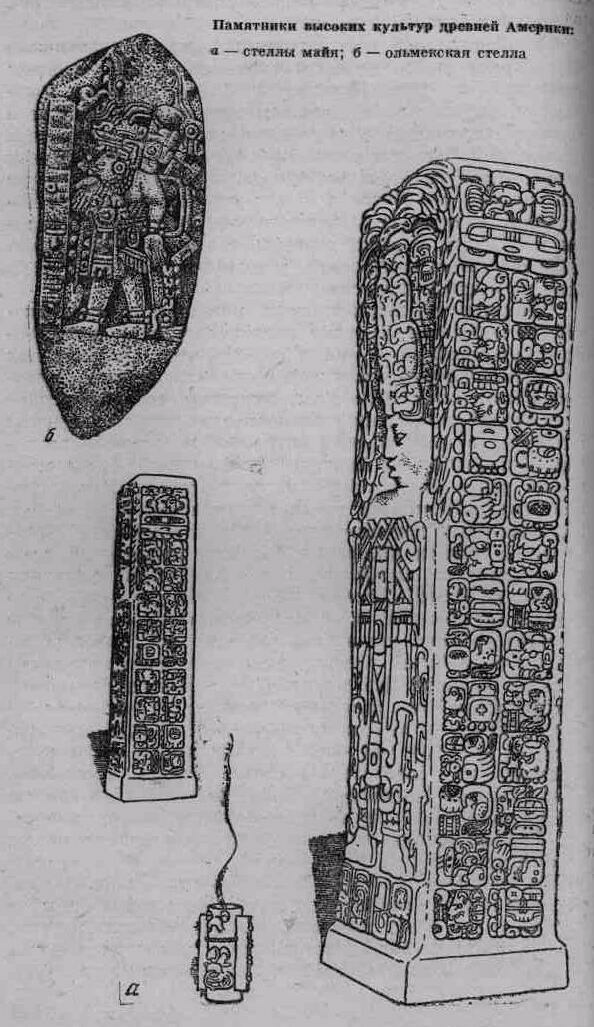 Памятники высоких культур древней Америки:
а — стеллы майя; б — ольмекская стелла
б
а